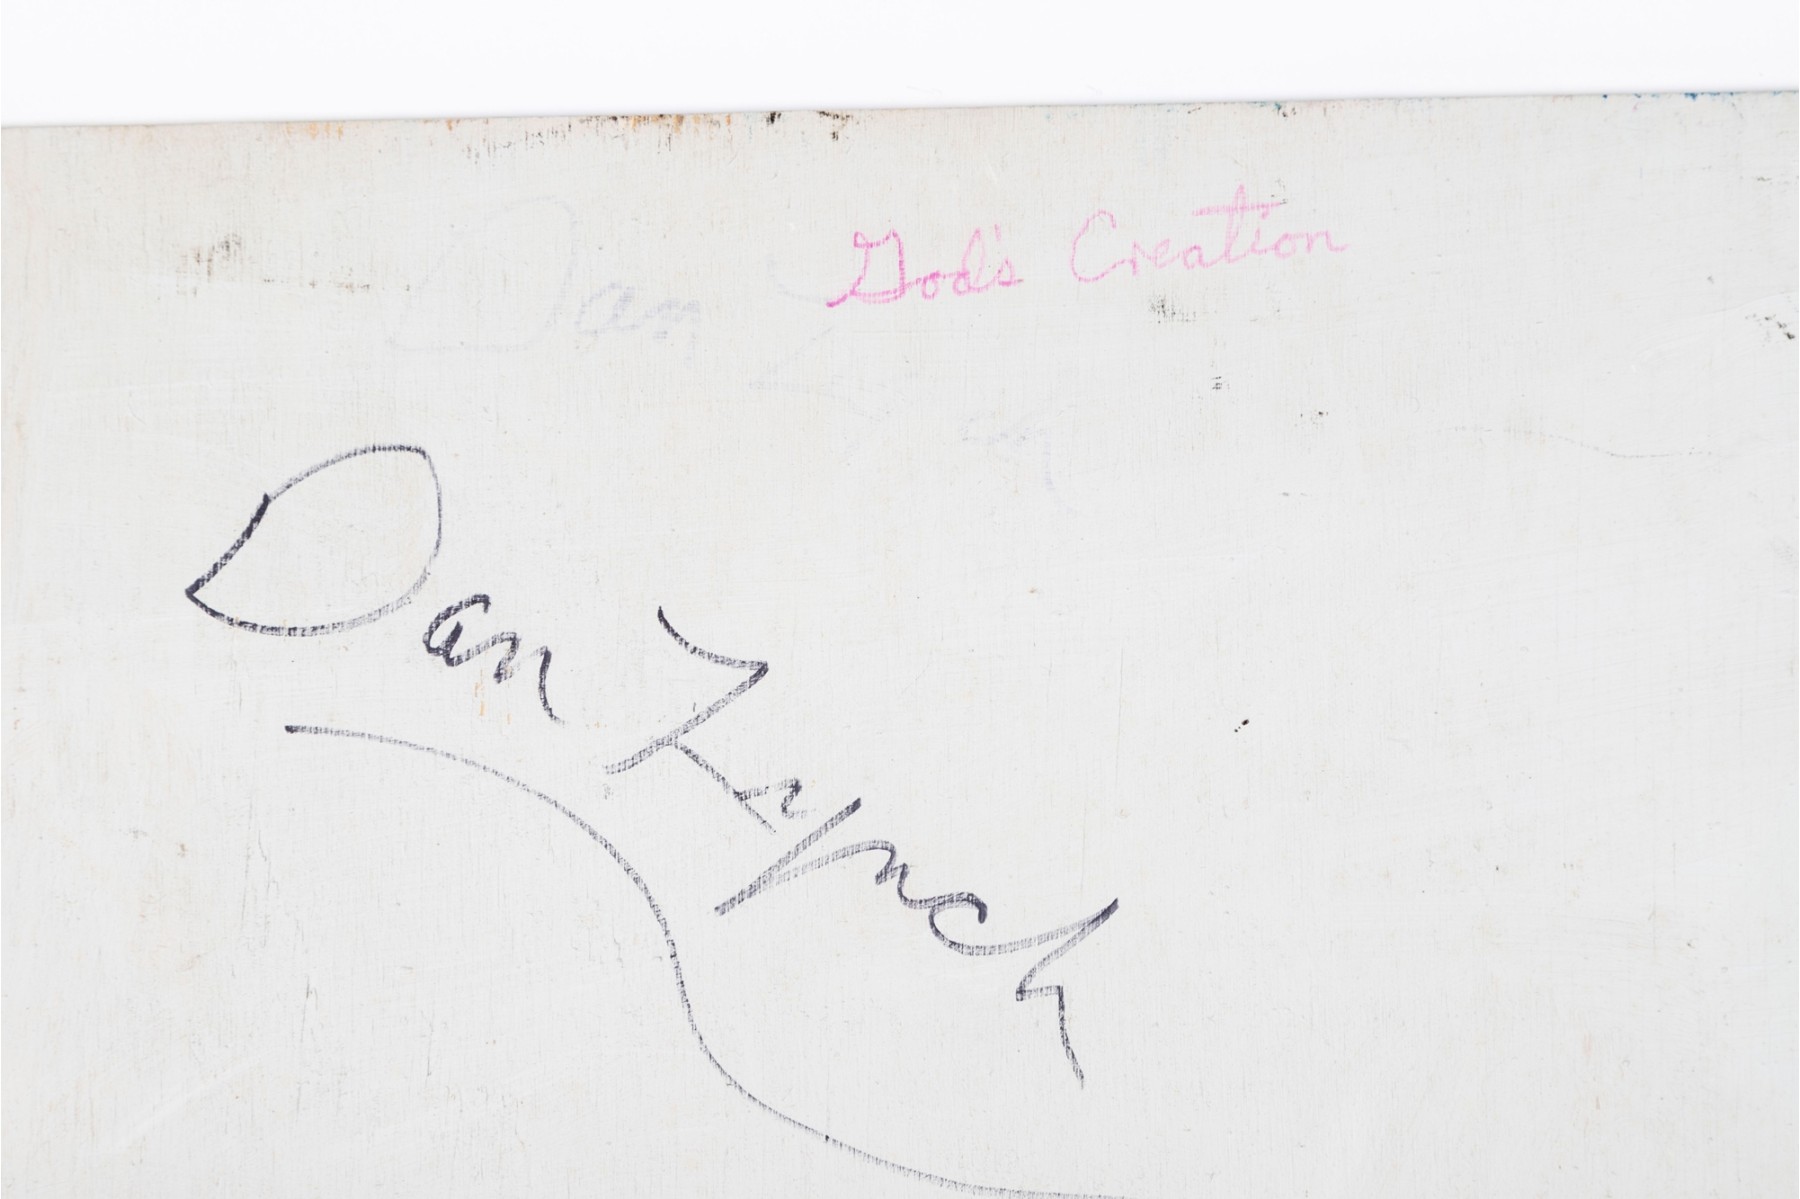 God's Creation
Dan
Dan Lynch